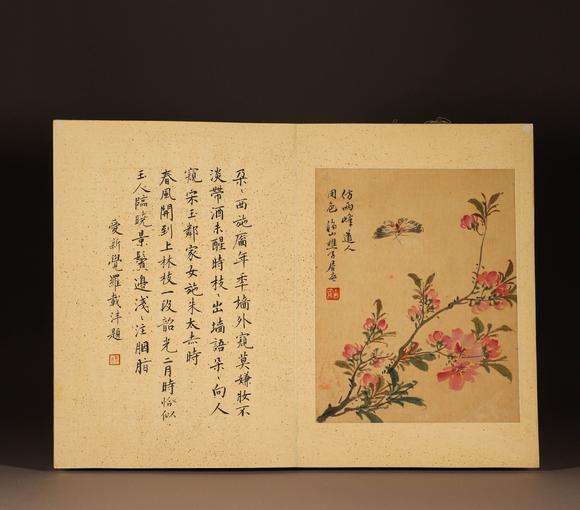 仿兩峰道人
用色 隔山樵子居廉
朵〻西施靨年秊墻外窺莫嫌妝不
淡帶酒未醒時枝〻出墻語朵〻向人
窺宋玉鄰家女施朱太赤時
春風開到上林枝一段韶光二月時恰似
玉人臨晚景鬢邊淺〻注胭脂
愛新覺羅載沣題